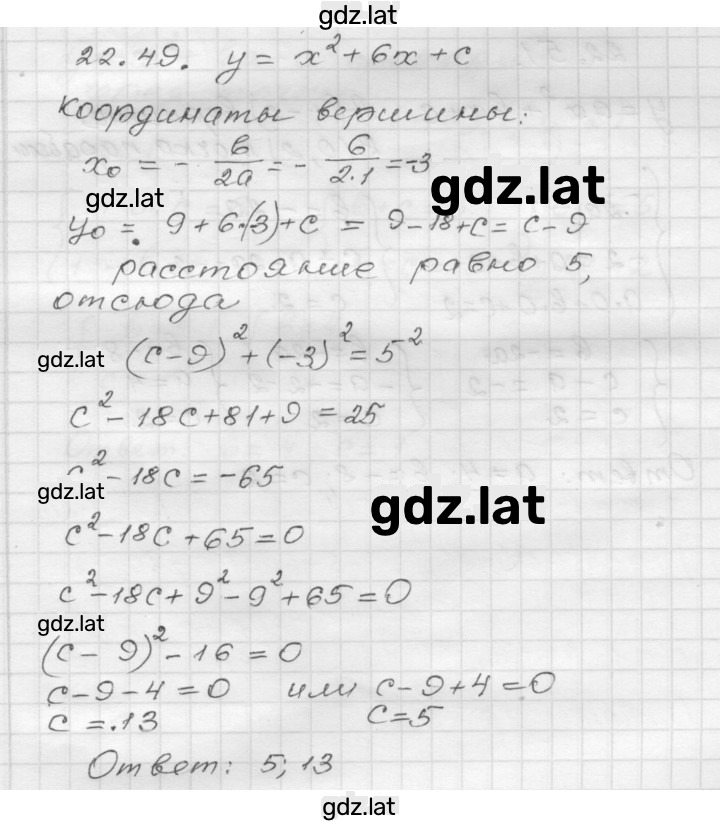 gdz.lat
22.49. y = x² + 6x + c
координаты вершины:
x₀ = - в/2a = - 6/2.1 = -3
gdz.lat
gdz.lat
y₀ = 9 + 6·(3) + c = 9 - 18 + c = c - 9
расстояние равно 5,
отсюда
gdz.lat (c-9)² + (-3)² = 5²
c² - 18c + 81 + 9 = 25
c² - 18c = -65
gdz.lat
gdz.lat
c² - 18c + 65 = 0
c² - 18c + 9² - 9² + 65 = 0
gdz.lat
(c - 9)² - 16 = 0
c - 9 - 4 = 0 или c - 9 + 4 = 0
c = 13 c = 5
Ответ: 5; 13
gdz.lat